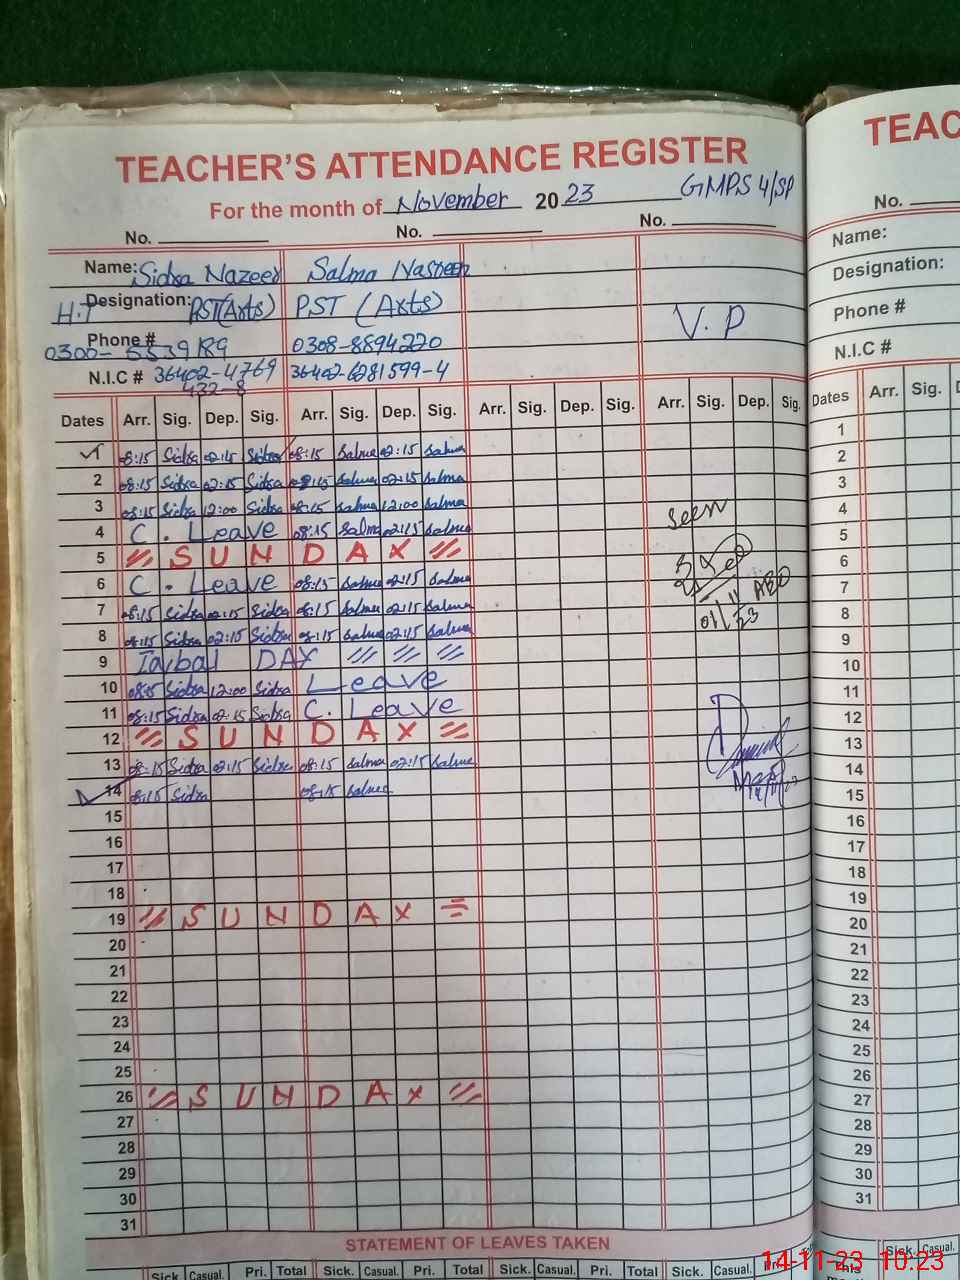 TEACHER'S ATTENDANCE REGISTER
For the month of November 2023 GMPS 4/SP
No. No. No.
Name: Sidra Nazeer Salma Nasreen
H.T Designation: PST(Arts) PST (Arts)
Phone # 0308-8894220 V.P
0300-
N.I.C # 36402-4769 36402-6281599-4
432-8
Dates Arr. Sig. Dep. Sig. Arr. Sig. Dep. Sig. Arr. Sig. Dep. Sig. Arr. Sig. Dep. Sig.
1 08:15 Sidra 02:15 Sidra 08:15 Salma 02:15 Salma
2 08:15 Sidra 02:15 Sidra 08:15 Salma 02:15 Salma
3 08:15 Sidra 12:00 Sidra 08:15 Salma 12:00 Salma
4 C. Leave 08:15 Salma 02:15 Salma
5 SUNDAY
6 C. Leave 08:15 Salma 02:15 Salma
7 08:15 Sidra 02:15 Sidra 08:15 Salma 02:15 Salma
8 08:15 Sidra 02:15 Sidra 08:15 Salma 02:15 Salma
9 Iqbal DAY
10 08:15 Sidra 12:00 Sidra Leave
11 08:15 Sidra 02:15 Sidra C. Leave
12 SUNDAY
13 08:15 Sidra 02:15 Sidra 08:15 Salma 02:15 Salma
14 08:15 Sidra 08:15 Salma
15
16
17
18
19 SUNDAY
20
21
22
23
24
25
26 SUNDAY
27
28
29
30
31
Seen
AEO
01/11/23
STATEMENT OF LEAVES TAKEN
Sick. Casual. Pri. Total Sick. Casual. Pri. Total Sick. Casual. Pri. Total Sick. Casual. Pri.
TEAC
No.
Name:
Designation:
Phone #
N.I.C #
Dates Arr. Sig. D
1
2
3
4
5
6
7
8
9
10
11
12
13
14
15
16
17
18
19
20
21
22
23
24
25
26
27
28
29
30
31
Sick. Casual.
This
14-11-23 10:23